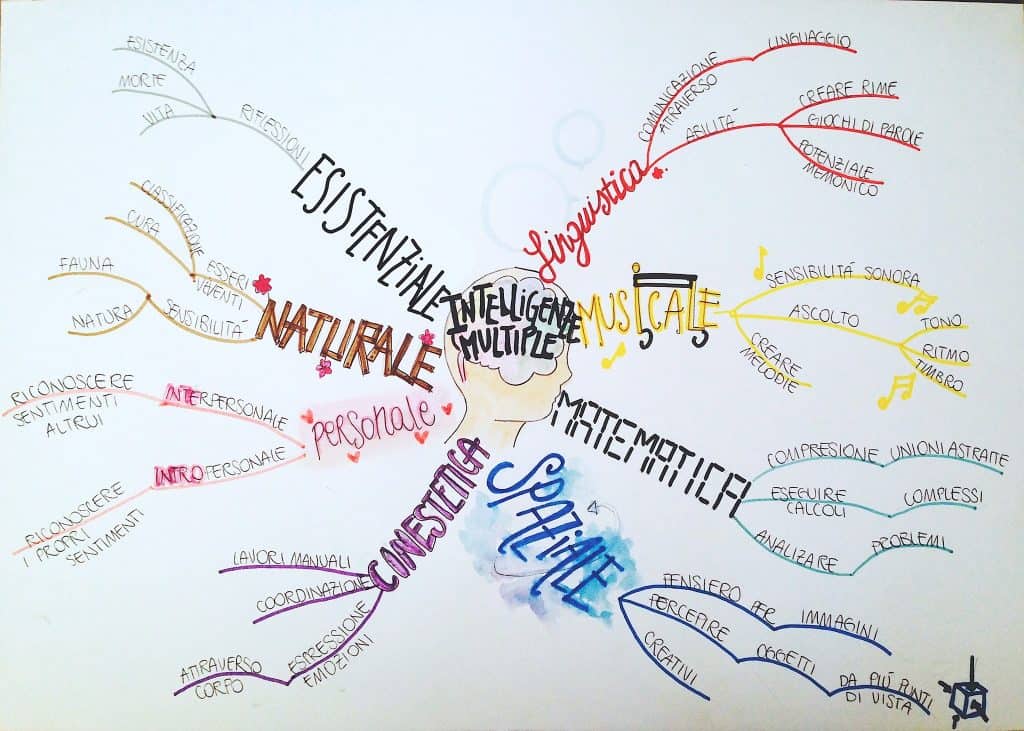 INTELLIGENZE
MULTIPLE
Linguistica
COMUNICAZIONE
ATTRAVERSO
LINGUAGGIO
ABILITÀ
CREARE RIME
GIOCHI DI PAROLE
POTENZIALE
MEMONICO
MUSICALE
SENSIBILITÁ SONORA
ASCOLTO
TONO
RITMO
TIMBRO
CREARE
MELODIE
MATEMATICA
COMPRESIONE
UNIONI ASTRATTE
ESEGUIRE
CALCOLI
COMPLESSI
ANALIZARE
PROBLEMI
SPAZIALE
PENSIERO PER
IMMAGINI
PERCEPIRE
OGGETTI
DA PIÚ PUNTI
DI VISTA
CREATIVI
CINESTETICA
LAVORI MANUALI
COORDINAZIONE
ESPRESSIONE
EMOZIONI
ATTRAVERSO
CORPO
personale
INTERPERSONALE
RICONOSCERE
SENTIMENTI
ALTRUI
INTROPERSONALE
RICONOSCERE
I PROPRI
SENTIMENTI
NATURALE
ESSERI
VIVENTI
CLASSIFICAZIONE
CURA
SENSIBILITÀ
FAUNA
NATURA
ESISTENZIALE
RIFLESSIONI
ESISTENZA
MORTE
VITA